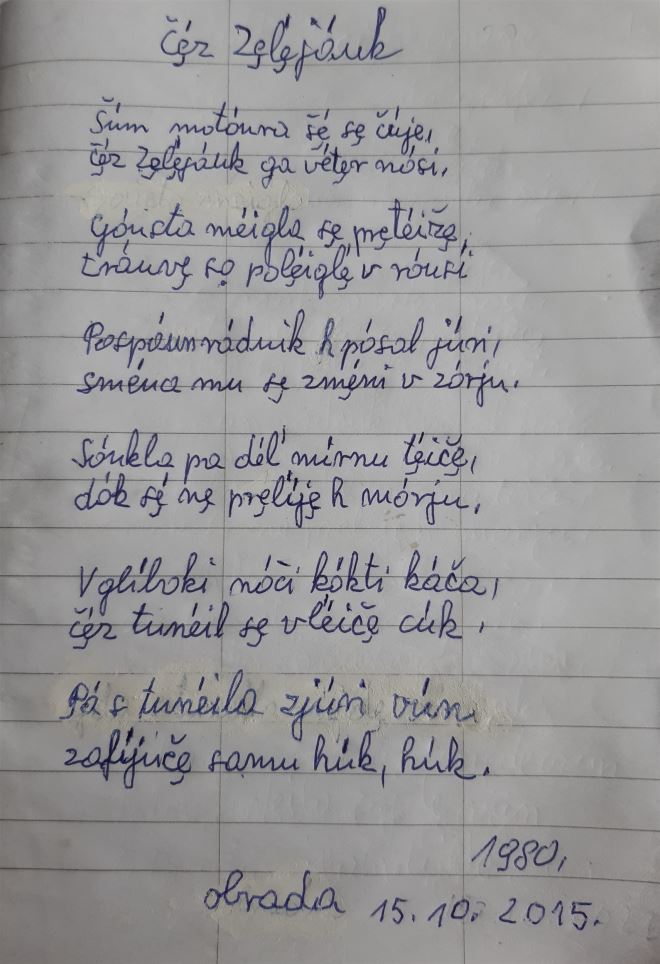 Čę́z Zęlę́jáuk
Šúm motóura šę́ sę čúje,
čę́z Zęlę́jáuk ga vétęr nósi.
Góusta méigla sę prętéižę,
tráuvę só poléiglę v róusi
Pospáun rádnik h pósal júri,
sména mu sę zméni v zórju.
Sóukla pa dél mírnu tęíčę,
dók sę́ nę pręlíję h mórju.
V glíboki nóči kókti káča,
čę́z tunéil sę vléičę cúk.
Pá s tunéila zjúri vún
zafíjučę samu húk, húk.
1980,
obrada 15. 10. 2015.